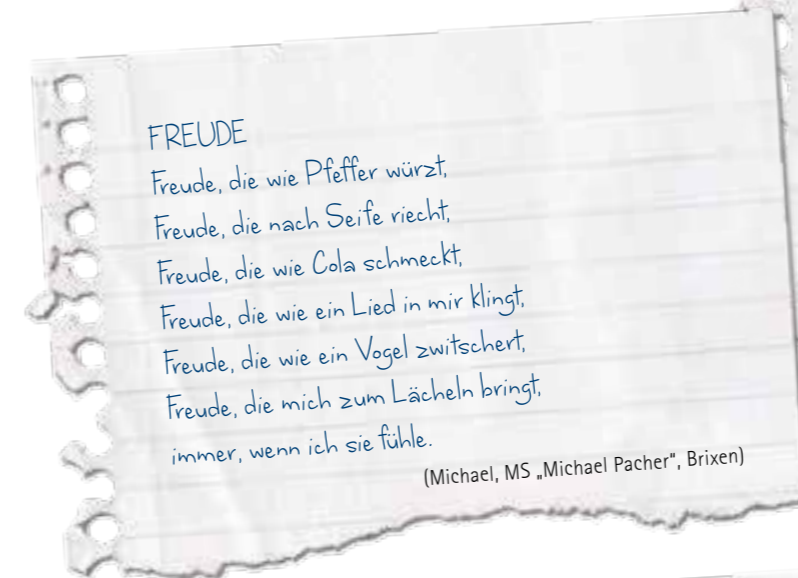 FREUDE
Freude, die wie Pfeffer würzt,
Freude, die nach Seife riecht,
Freude, die wie Cola schmeckt,
Freude, die wie ein Lied in mir klingt,
Freude, die wie ein Vogel zwitschert,
Freude, die mich zum Lächeln bringt,
immer, wenn ich sie fühle.
(Michael, MS „Michael Pacher", Brixen)